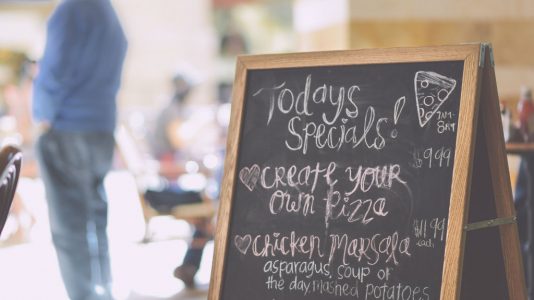 Todays
Specials!
7AM-
8PM
$9.99
Create your
own Pizza
$11.99
each
Chicken Marsala
asparagus, soup of
the day mashed potatoes